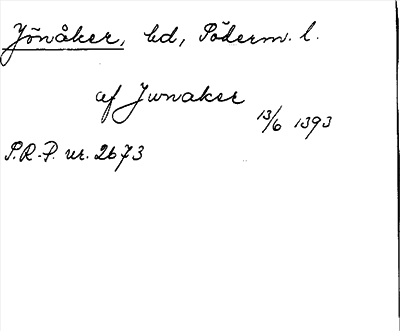 Jönåker, hd, Söderm. l.
af Junaker
13/6 1393
S.R.P. nr. 2673